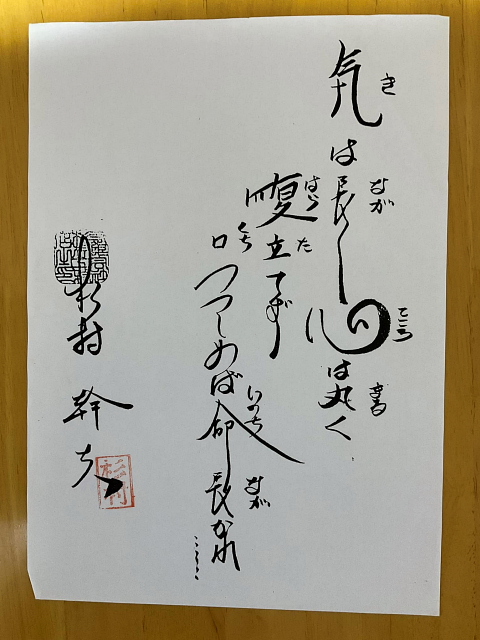 気は長く心は丸く
き なが こころ まる
腹立てず
はら た
口つつしめば命長かれ
くち いのち なが
杉村
幹夫